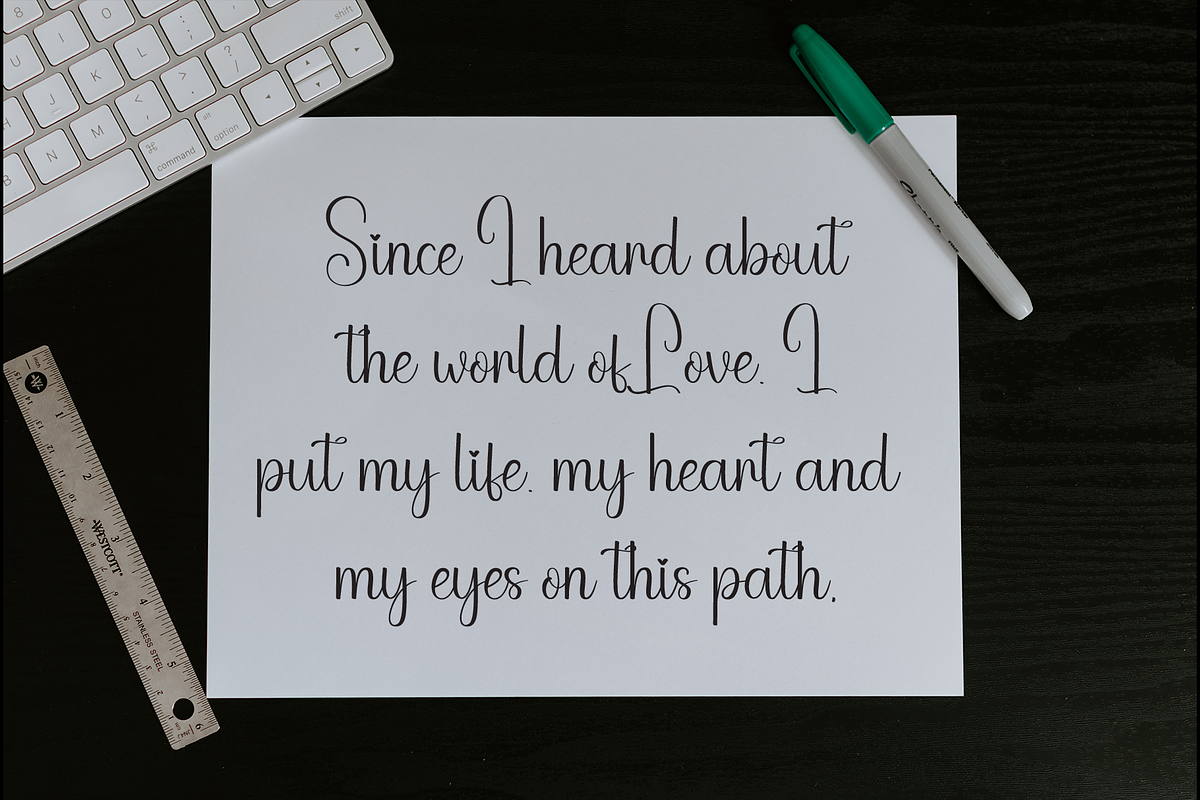 8 I O : ; shift
U J K L > . ? /
H N M < , alt option
B ⌘ command
Since I heard about
the world of Love. I
put my life. my heart and
my eyes on this path.
W
WESTCOTT
STAINLESS STEEL
1 2 3 4 5 6